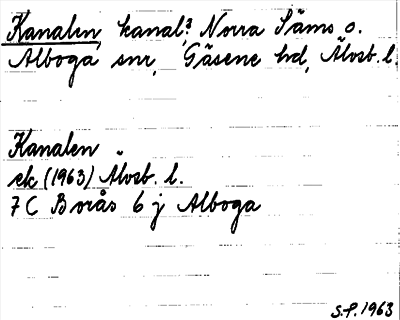 Kanalen, kanal? Norra Säms o.
Alboga snr, Gäsene hd, Älvsb. l.
Kanalen
ek (1963) Älvsb. l.
7C Borås 6 j Alboga
S.P. 1963